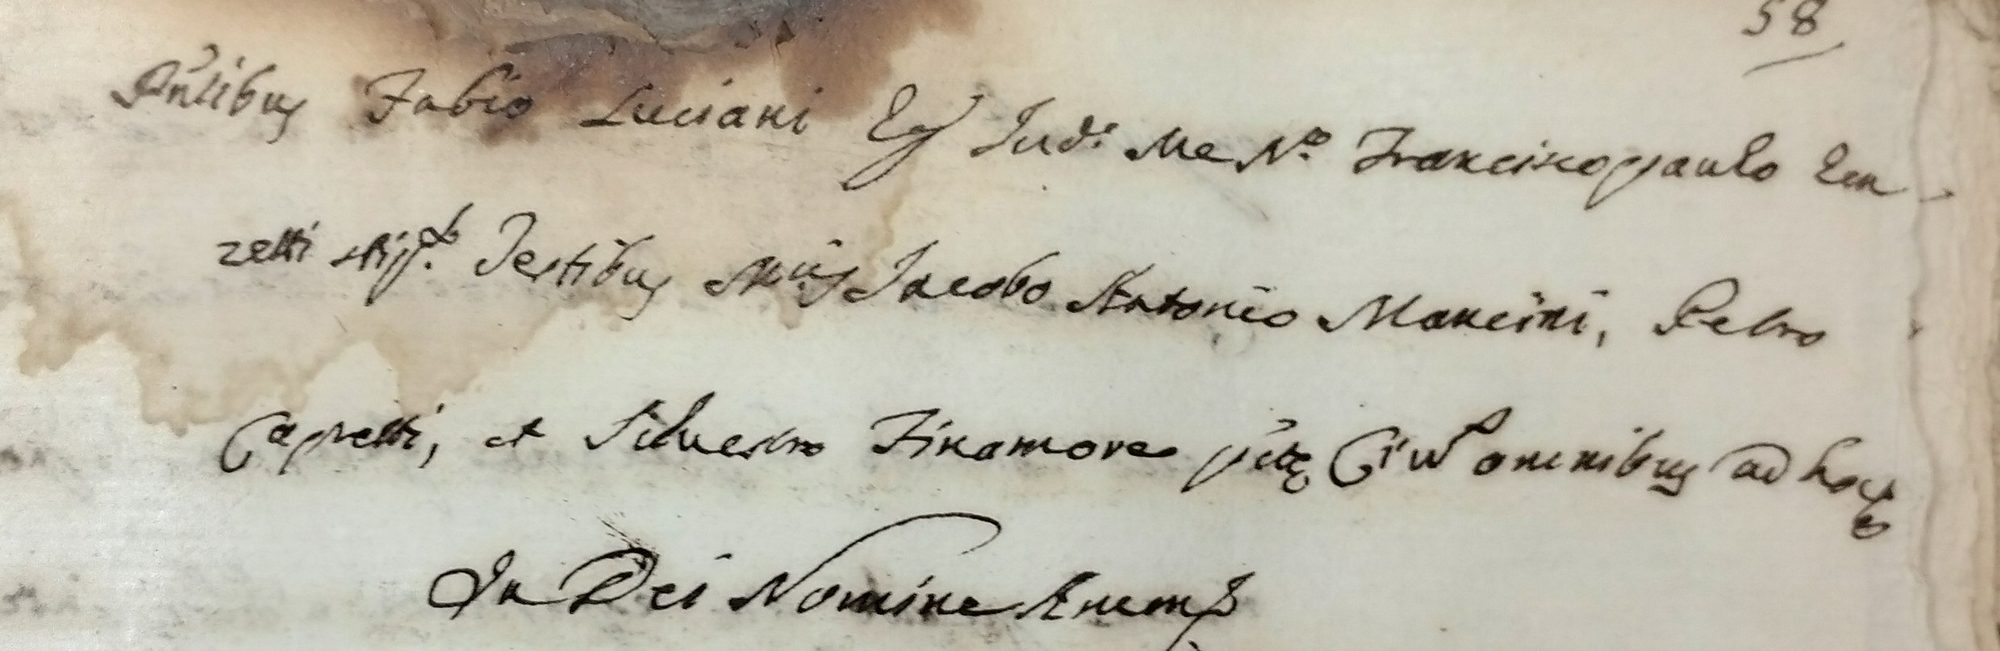 58
Pñtibus Fabio Luciani Jud: Me No: Franciscopaulo Len
zetti Testibus Jacobo Antonio Mancini, Petro
Capretti, et Siluestro Finamore omnibus ad hoc
In Dei Nomine Amen